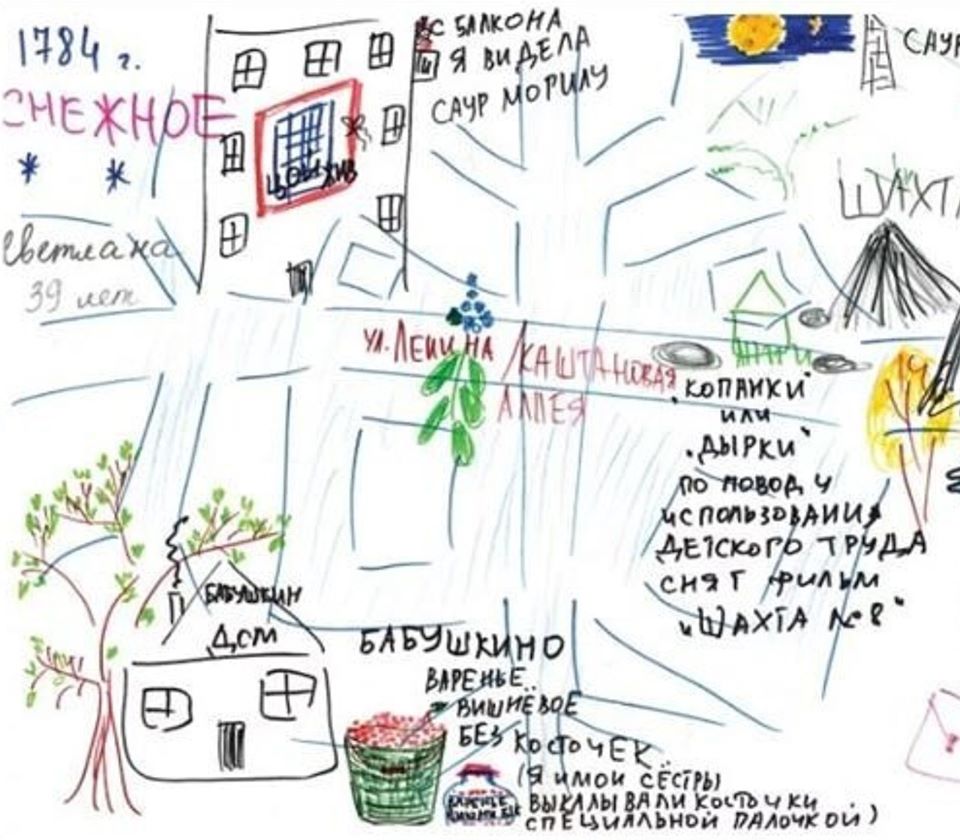 1784 г.
СНЕЖНОЕ
Светлана
39 лет
С БАЛКОНА
Я ВИДЕЛА
САУР МОГИЛУ
САУР
ШАХТ
УЛ. ЛЕНИНА / КАШТАНОВАЯ
АЛЛЕЯ
"КОПАНКИ"
ИЛИ
"ДЫРКИ"
ПО ПОВОДУ
ИСПОЛЬЗОВАНИЯ
ДЕТСКОГО ТРУДА
СНЯТ ФИЛЬМ
"ШАХТА №8"
БАБУШКИН
ДОМ
БАБУШКИНО
ВАРЕНЬЕ
ВИШНЕВОЕ
БЕЗ КОСТОЧЕК
(Я И МОИ СЁСТРЫ
ВЫКАЛЫВАЛИ КОСТОЧКИ
СПЕЦИАЛЬНОЙ ПАЛОЧКОЙ)
ВАРЕНЬЕ